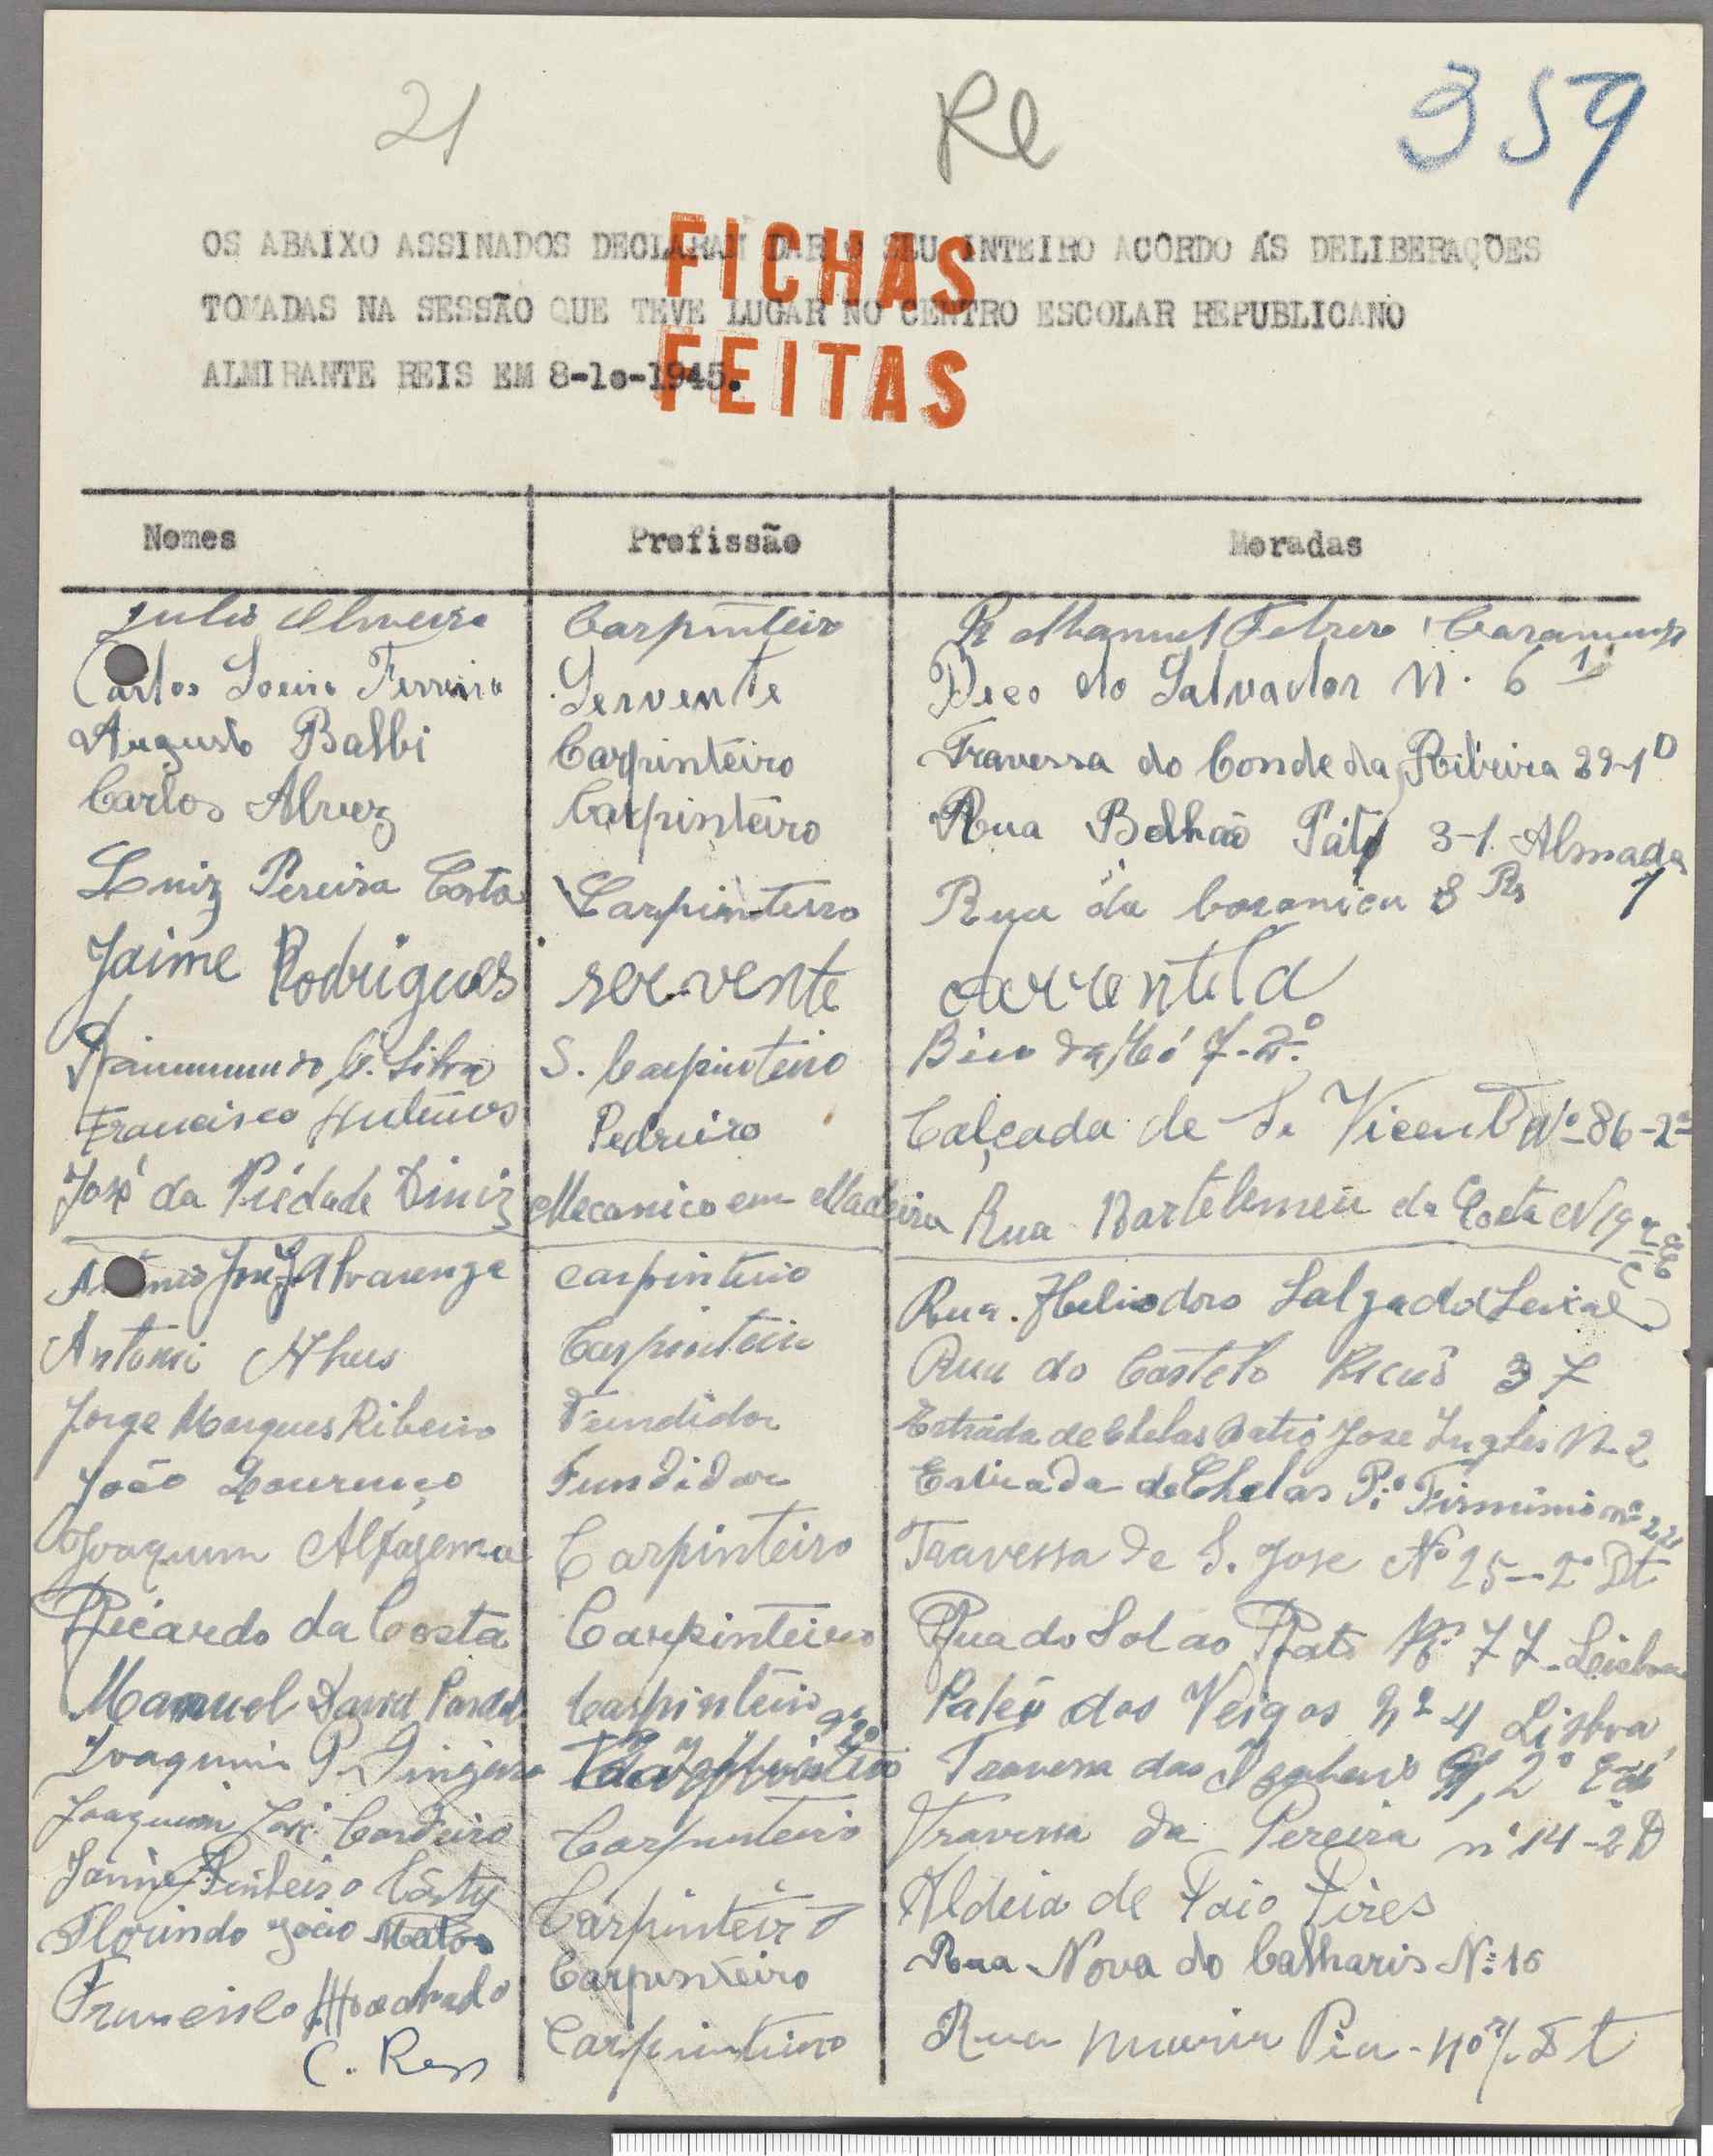 21 Re 359
OS ABAIXO ASSINADOS DECLARAM DAR O SEU INTEIRO ACÔRDO ÁS DELIBERAÇÕES
TOMADAS NA SESSÃO QUE TEVE LUGAR NO CENTRO ESCOLAR REPUBLICANO
ALMIRANTE REIS EM 8-1o-1945.
FICHAS
FEITAS
Nomes Profissão Moradas
Julio Carpinteiro R Manuel
Carlos Ferreira Servente Beco do Salvador N. 6 1º
Augusto Balbi Carpinteiro Travessa do Conde da Ribeira 29-1 D
Carlos Alvez Carpinteiro Rua Bolhão Páto 3-1 Almada
Luiz Pereira Costa Carpinteiro Rua da 8 1
Jaime Rodrigues servente arrentela
C. Silva S. Carpinteiro Beco da Mó 7-2º
Francisco Pedreiro Calçada de S. Vicente Nº 86-2º
José da Piedade Diniz Mecanico em Madeira Rua Bartolomeu da Costa
António José Alvarenga carpinteiro Rua Heliodoro Salgado Seixal
Carpinteiro Rua do Castelo Picão 37
Jorge Marques Ribeiro Fundidor Estrada de Chelas Patio Jose Ingles N 2
João Lourenço Fundidor Estrada de Chelas Pº Firmino nº 22
Joaquim Alfagema Carpinteiro Travessa de S. Jose Nº 25-2º Dt
Ricardo da Costa Carpinteiro Rua do Sol ao Rato Nº 77-Lisboa
Manuel David Carpinteiro Pateo dos Veigas nº 4 Lisboa
Joaquim P. Travessa das 2º
Joaquim José Cordeiro Carpinteiro Travessa da Pereira nº 14-2 D
Jaime Pinheiro Carpinteiro Aldeia de Paio Pires
Florindo João Matos Carpinteiro Rua Nova do Calharis Nº 16
Francisco Carpinteiro Rua Maria Pia
C.